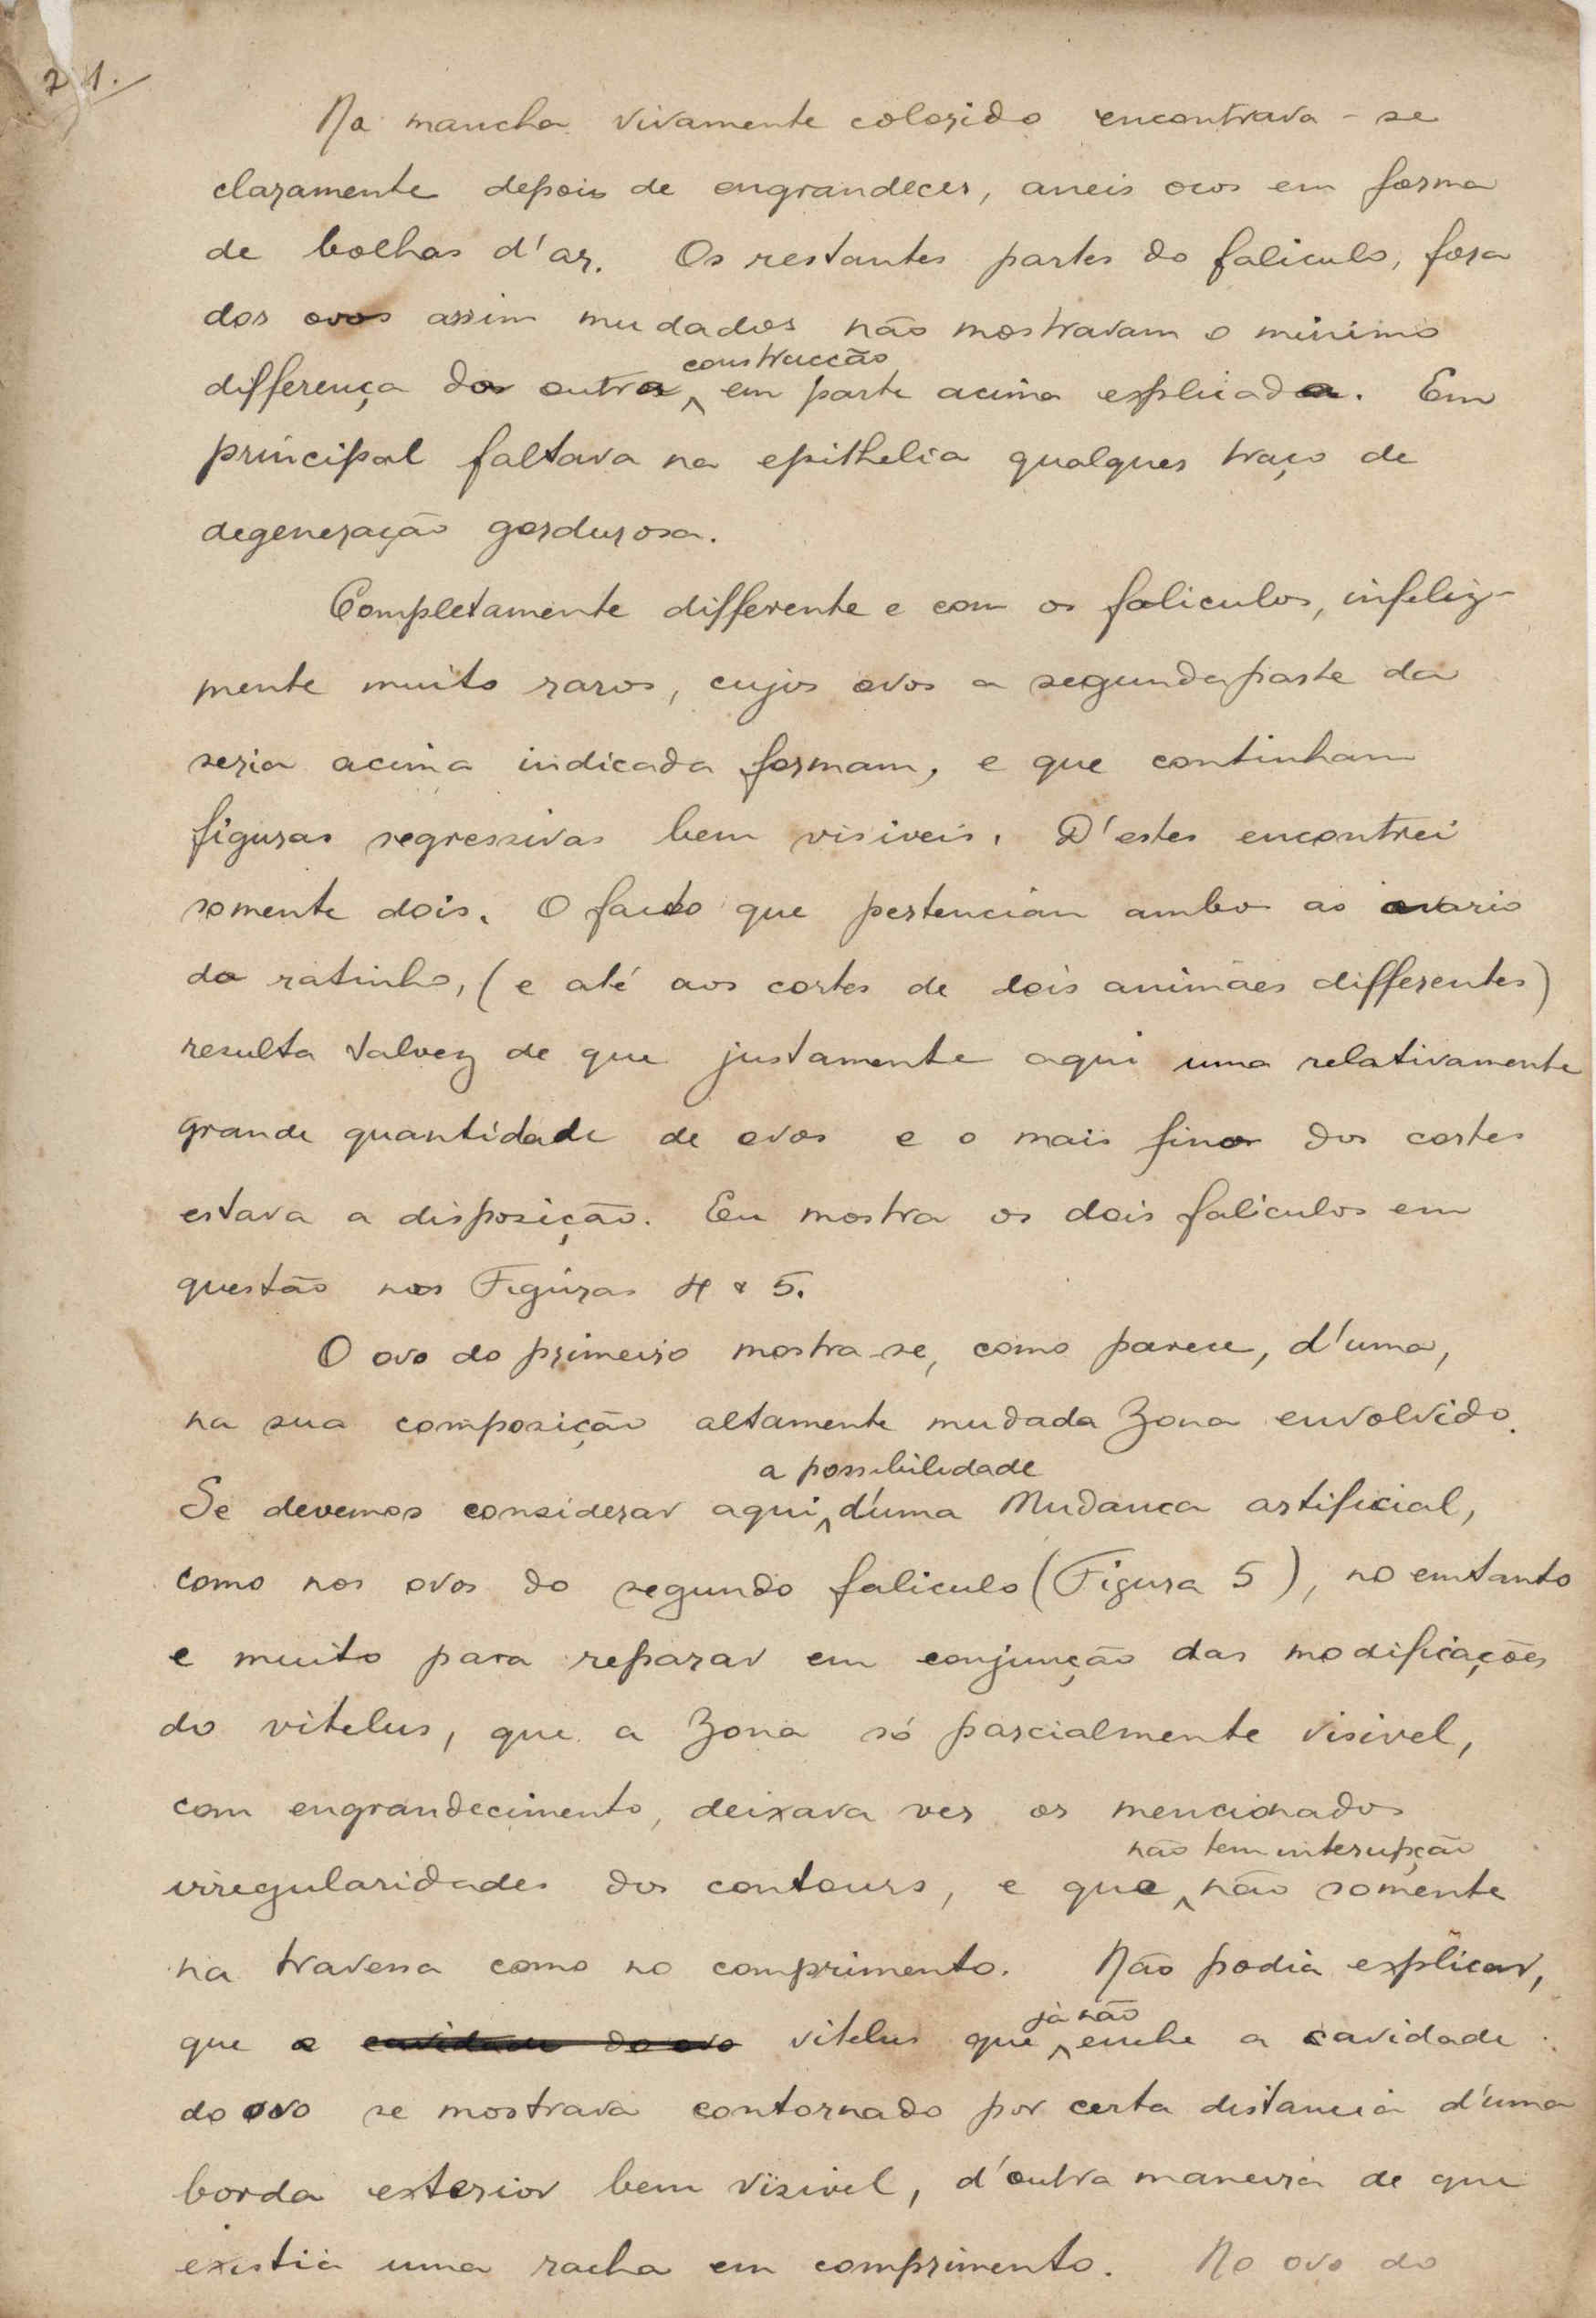 21.
Na mancha vivamente colorido encontrava-se
claramente depois de engrandecer, aneis ocos em forma
de bolhas d'ar. Os restantes partes do faliculo, fora
dos ovos assim mudados não mostravam o minimo
construcção
differença da outra em parte acima explicada. Em
principal faltava na epithelia qualquer traço de
degeneração gordurosa.
Completamente differente e com os faliculos, infeliz-
mente muito raros, cujos ovos a segunda parte da
seria acima indicada formam, e que continham
figuras regressivas bem visiveis. D'estes encontrei
somente dois. O facto que pertencian ambos ao ovario
da ratinho, (e até aos cortes de dois animães differentes)
resulta talvez de que justamente aqui uma relativamente
grande quantidade de ovos e o mais fino dos cortes
estava a disposição. Eu mostra os dois faliculos em
questão nos Figuras 4 & 5.
O ovo do primeiro mostra-se, como parece, d'uma,
na sua composição altamente mudada Zona envolvido.
a possibilidade
Se devemos considerar aqui d'uma Mudança artificial,
como nos ovos do segundo faliculo (Figura 5), no emtanto
e muito para reparar em conjunção das modificações
do vitelus, que a Zona só parcialmente visivel,
com engrandecimento, deixava ver os mencionados
não tem interupção
irregularidades dos contours, e que não somente
na travessa como no comprimento. Não podia explicar,
já não
que o cavidade do ovo vitelus que enche a cavidade
do ovo se mostrava contornado por certa distancia d'uma
borda exterior bem visivel, d'outra maneira de que
existia uma racha em comprimento. No ovo do